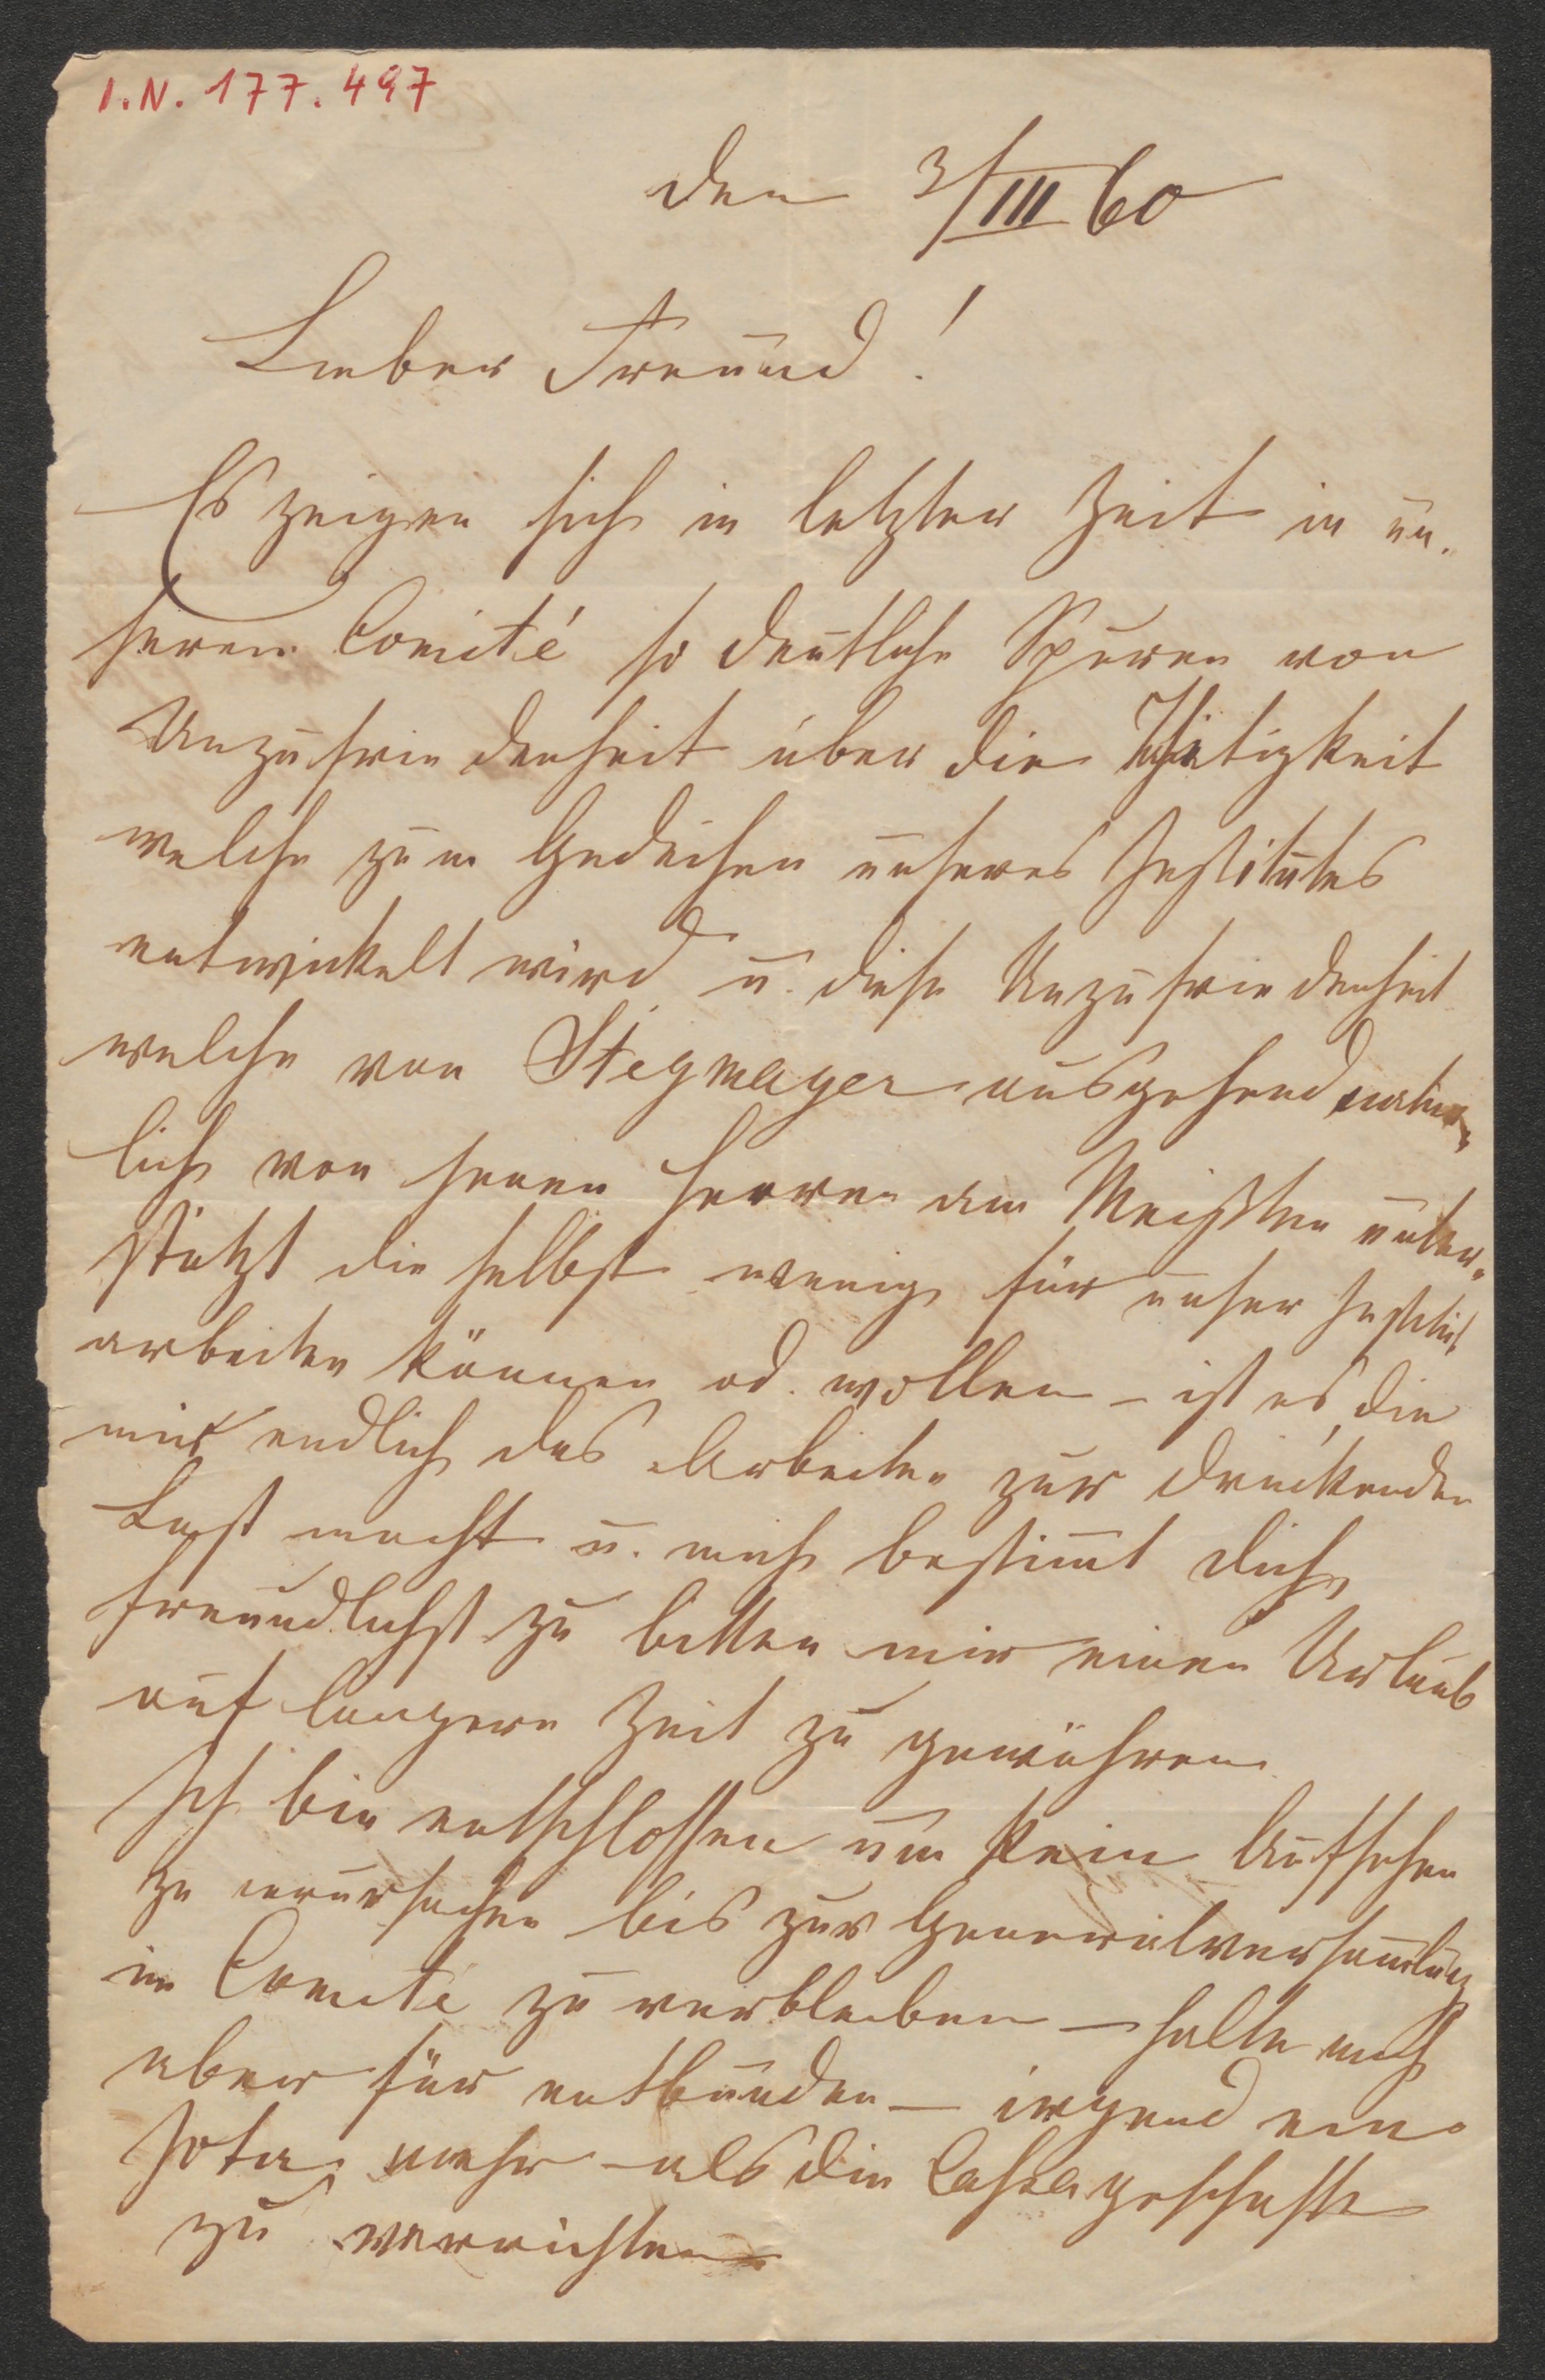 I.N. 177.497
den 3/III 60
Lieber Freund!
Es zeigen sich in letzter Zeit in un-
serem Comité so deutliche Spuren von
Unzufriedenheit über die Thätigkeit
welche zum Gedeihen unseres Institutes
entwickelt wird u. diese Unzufriedenheit
welche von Stegmayer ausgehend natür-
lich von jenen Herren am Meisten unter-
stützt die selbst wenig für unser Institut
arbeiten können od. wollen – ist es, die
mir endlich das Arbeiten zur drückenden
Last macht u. mich bestimt dich
freundlichst zu bitten mir einen Urlaub
auf längere Zeit zu gewähren
Ich bin entschlossen um kein Aufsehen
zu verursachen bis zur Generalversamlung
im Comité zu verbleiben – halte mich
aber für entbunden – irgend ein
Jota mehr als die Cassageschäfte
zu verrichten